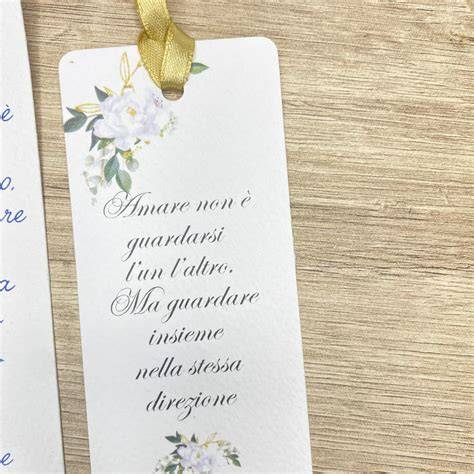 è
o.
re
a
e
Amare non è
guardarsi
l'un l'altro.
Ma guardare
insieme
nella stessa
direzione